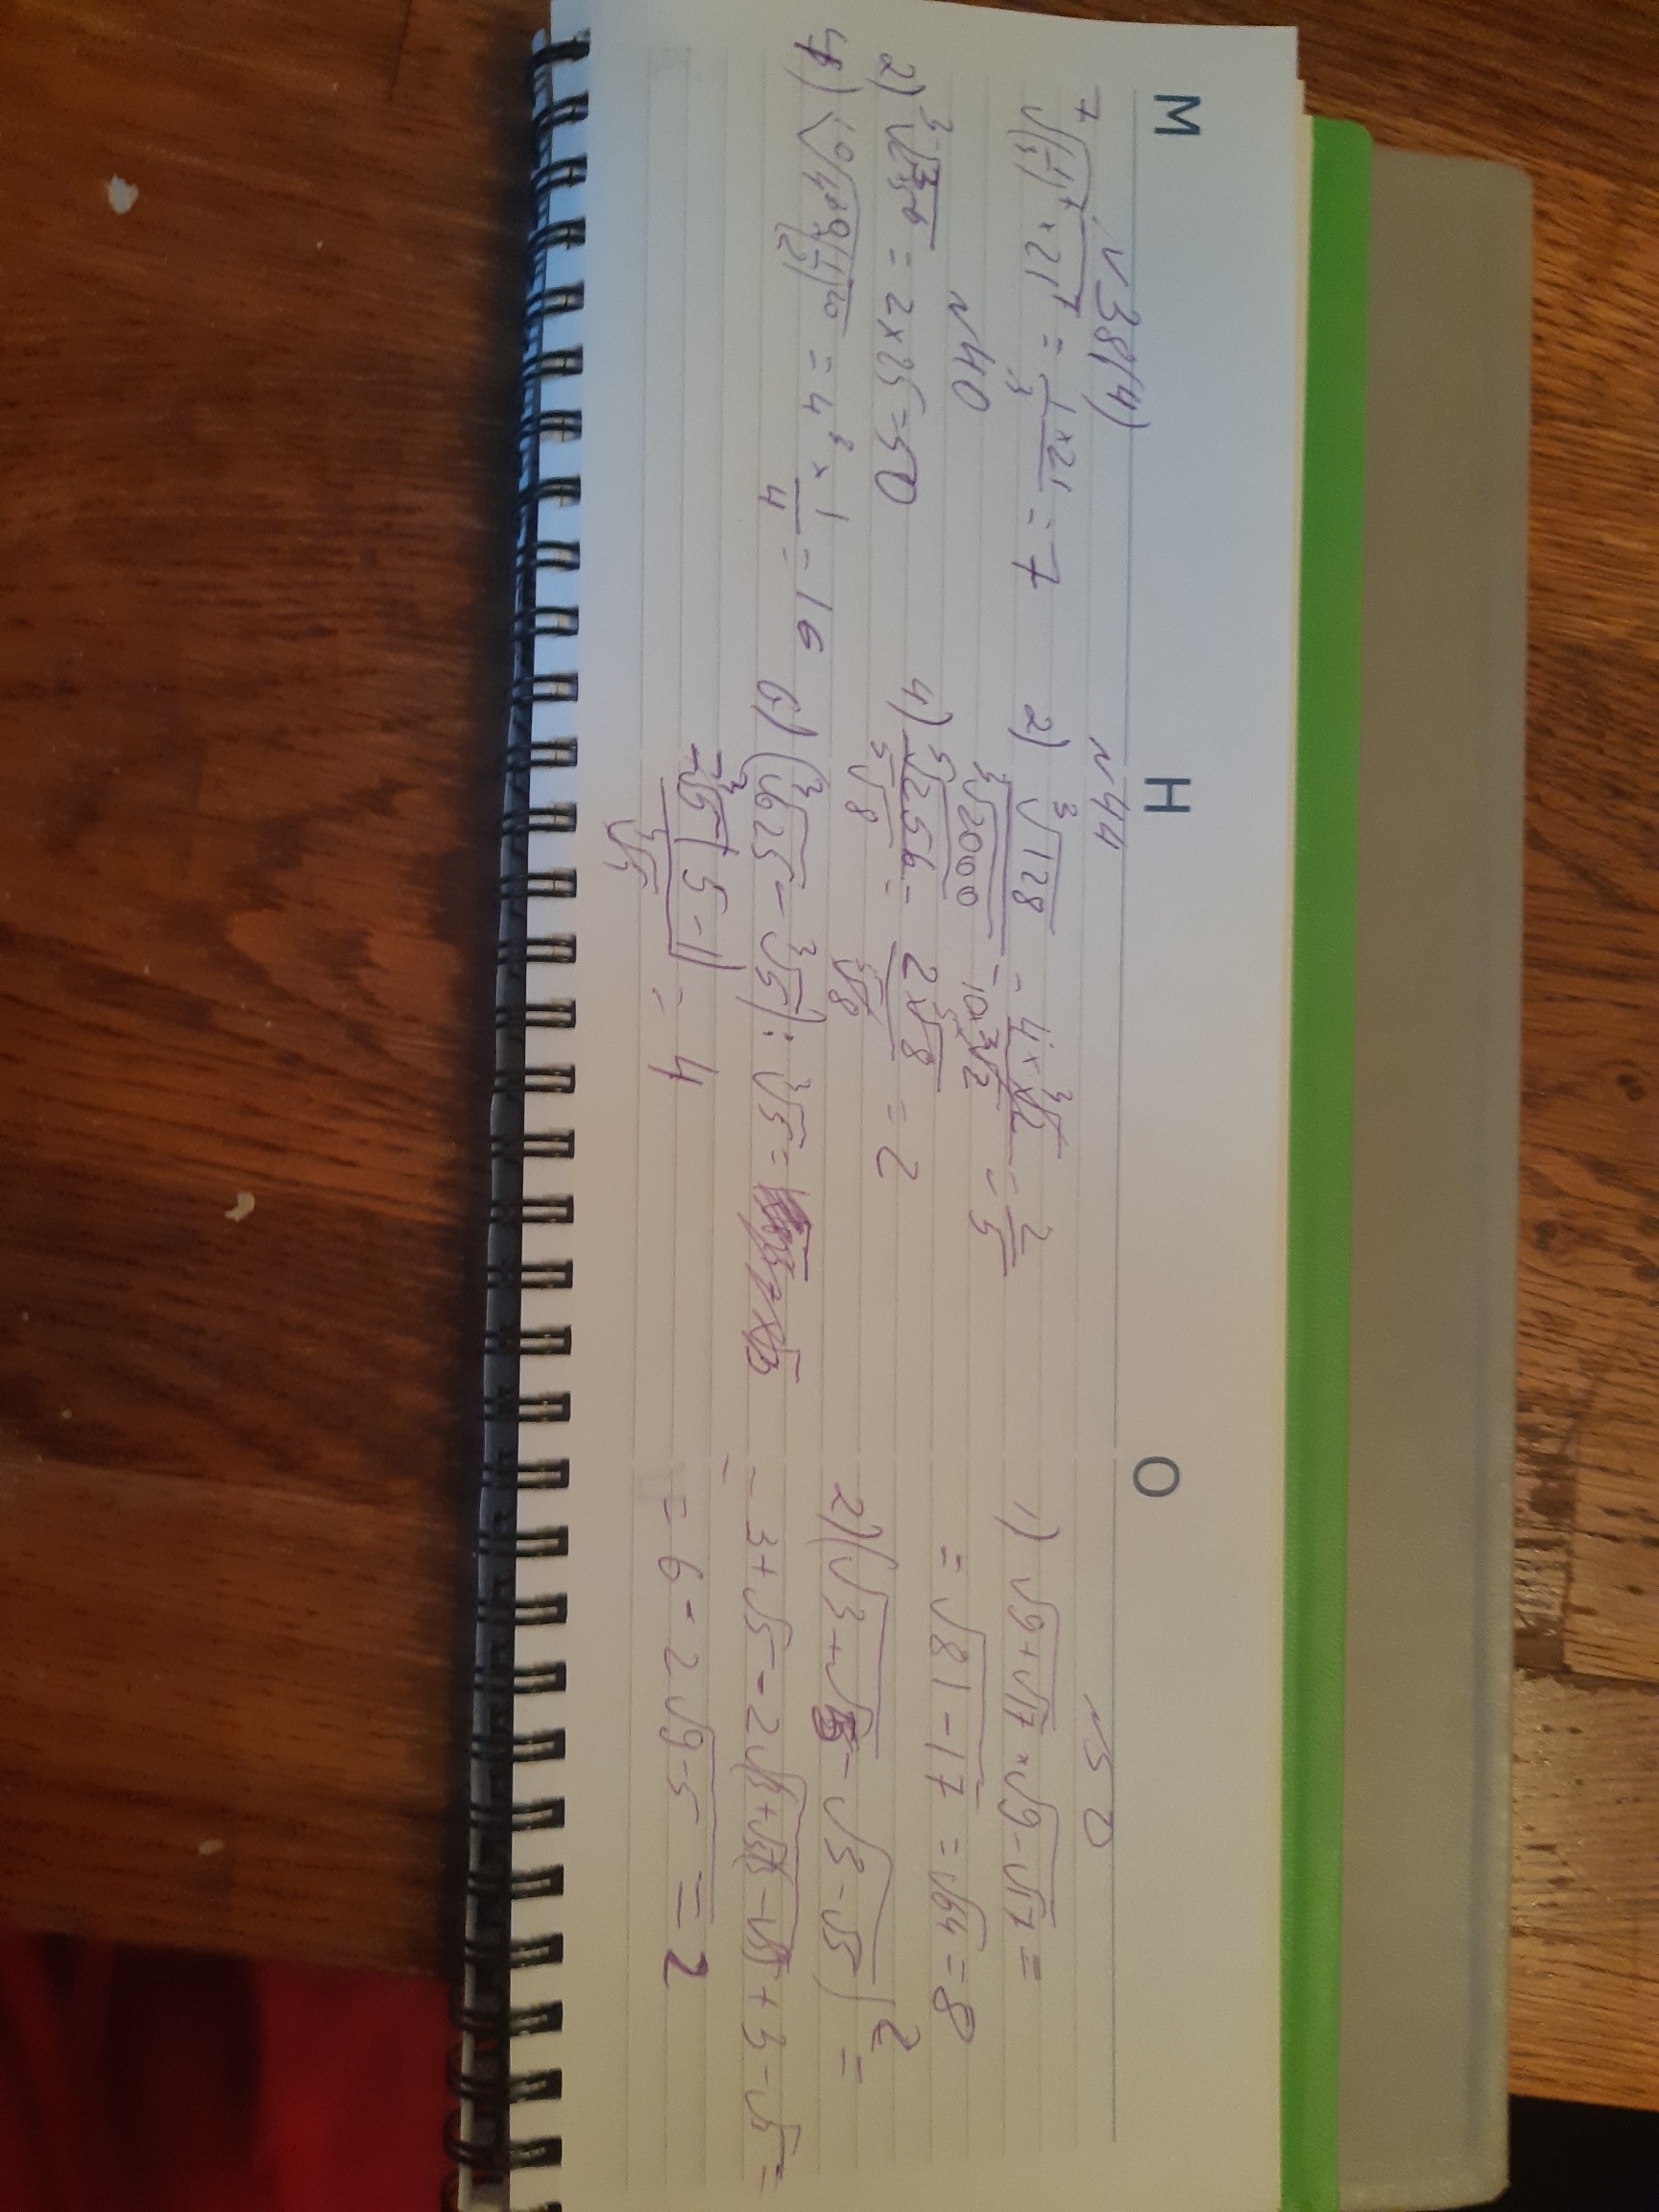 M
№38(4)
⁷√((1/3)⁷ × 21⁷) = 1/3 × 21 = 7
№40
2) = 2 × 25 = 50
4) = 4³ × 1/4 = 16
H
№44
2) ³√128 / ³√2000 = 4 × ³√2 / 10 × ³√2 = 2/5
4) ⁵√256 / ⁵√8 = 2 × ⁵√8 / ⁵√8 = 2
6) (³√625 - ³√5) : ³√5 =
= ³√5(5 - 1) / ³√5 = 4
O
№50
1) √(9 + √17) × √(9 - √17) =
= √(81 - 17) = √64 = 8
2) (√(3 + √5) - √(3 - √5))² =
= 3 + √5 - 2√((3 + √5)(3 - √5)) + 3 - √5 =
= 6 - 2√(9 - 5) = 2